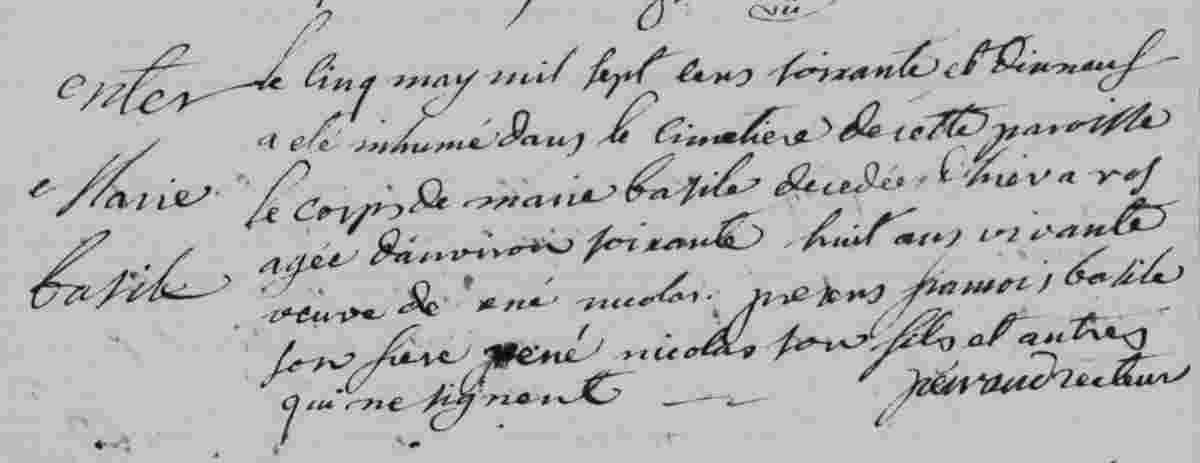 enter
e Marie
basile
le cinq may mil sept cens soixante et dixneuf
a eté inhumé dans le cimetiere de cette paroisse
le corps de marie basile decedée hier a
agée d'anviron soixante huit ans vivante
veuve de ené nicolas. presens francois basile
son frere rené nicolas son fils et autres
qui ne signent
recteur